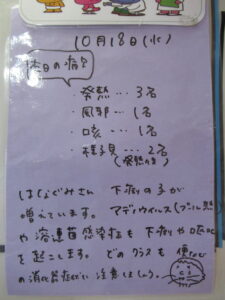 10月18日(水)
本日の病?
・発熱 … 3名
・風邪 … 1名
・咳 … 1名
・様子見 … 2名
(発熱含)
ほし ぐみさん 下痢の子が
増えています。 アデノウイルス(プール熱)
や溶連菌感染症も下痢や嘔吐
を起こします。 どのクラスも 便など
の消化器症状に注意しましょう。